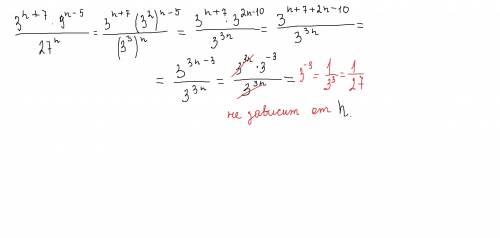 3^{n+7} · 9^{n-5} / 27^n = 3^{n+7} (3^2)^{n-5} / (3^3)^n = 3^{n+7} · 3^{2n-10} / 3^{3n} = 3^{n+7+2n-10} / 3^{3n} =
= 3^{3n-3} / 3^{3n} = 3^{3n} · 3^{-3} / 3^{3n} = 3^{-3} = 1/3^3 = 1/27
не зависит от n.